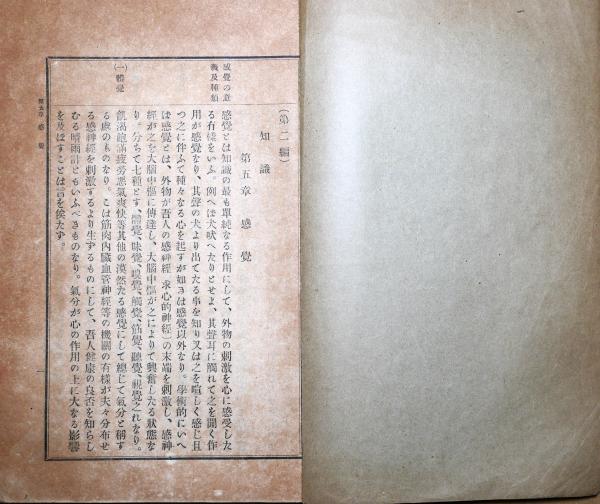 感覺の意
義及種類
(第二編)
知識
第五章 感覺
感覺とは知識の最も單純なる作用にして、外物の刺激を心に感受した
る有樣をいふ。例へば犬吠へたりとせよ、其聲耳に觸れて之を聞く作
用が感覺なり、其聲の犬より出でたる事を知り又は之を喧しく感じ且
つ之に伴ふて種々なる心を起すが如きは感覺以外なり。學術的にいへ
ば感覺とは、外物が吾人の感神經(求心的神經)の末端を刺激し、感神
經が之を大腦中樞に傳達し、大腦中樞が之によりて興奮したる狀態な
り。分ちて七種とす、體覺、味覺、嗅覺、觸覺、筋覺、聽覺、視覺之れなり。
(一)體覺
飢渴飽滿疲勞惡氣爽快等其他の漠然たる感覺にして總じて氣分と稱す
る處のものなり。こは筋肉內臟血管神經等の機關の有樣が夫々分布せ
る感神經を刺激するより生ずるものにして、吾人健康の良否を知らし
むる晴雨計ともいふべきものなり。氣分が心の作用の上に大なる影響
を及ぼすことは言を俟たず。
第五章 感覺